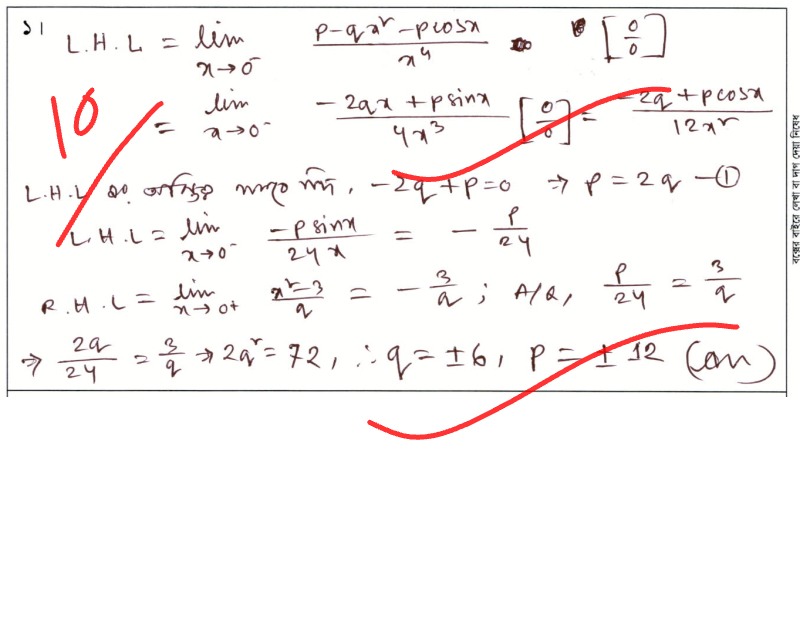 ১।
L.H.L = lim x→0⁻ (p-qx²-pcosx)/x⁴ [0/0]
10
= lim x→0⁻ (-2qx+psinx)/4x³ [0/0] = (-2q+pcosx)/12x²
L.H.L এর -2q+p=0 ⇒ p=2q -①
L.H.L = lim x→0⁻ (-psinx)/24x = -p/24
R.H.L = lim x→0+ (x²-3)/q = -3/q ; A/Q, p/24 = 3/q
⇒ 2q/24 = 3/q ⇒ 2q² = 72, ∴ q = ±6, p = ±12 (Ans)
বক্সের বাইরে লেখা বা দাগ দেয়া নিষেধ